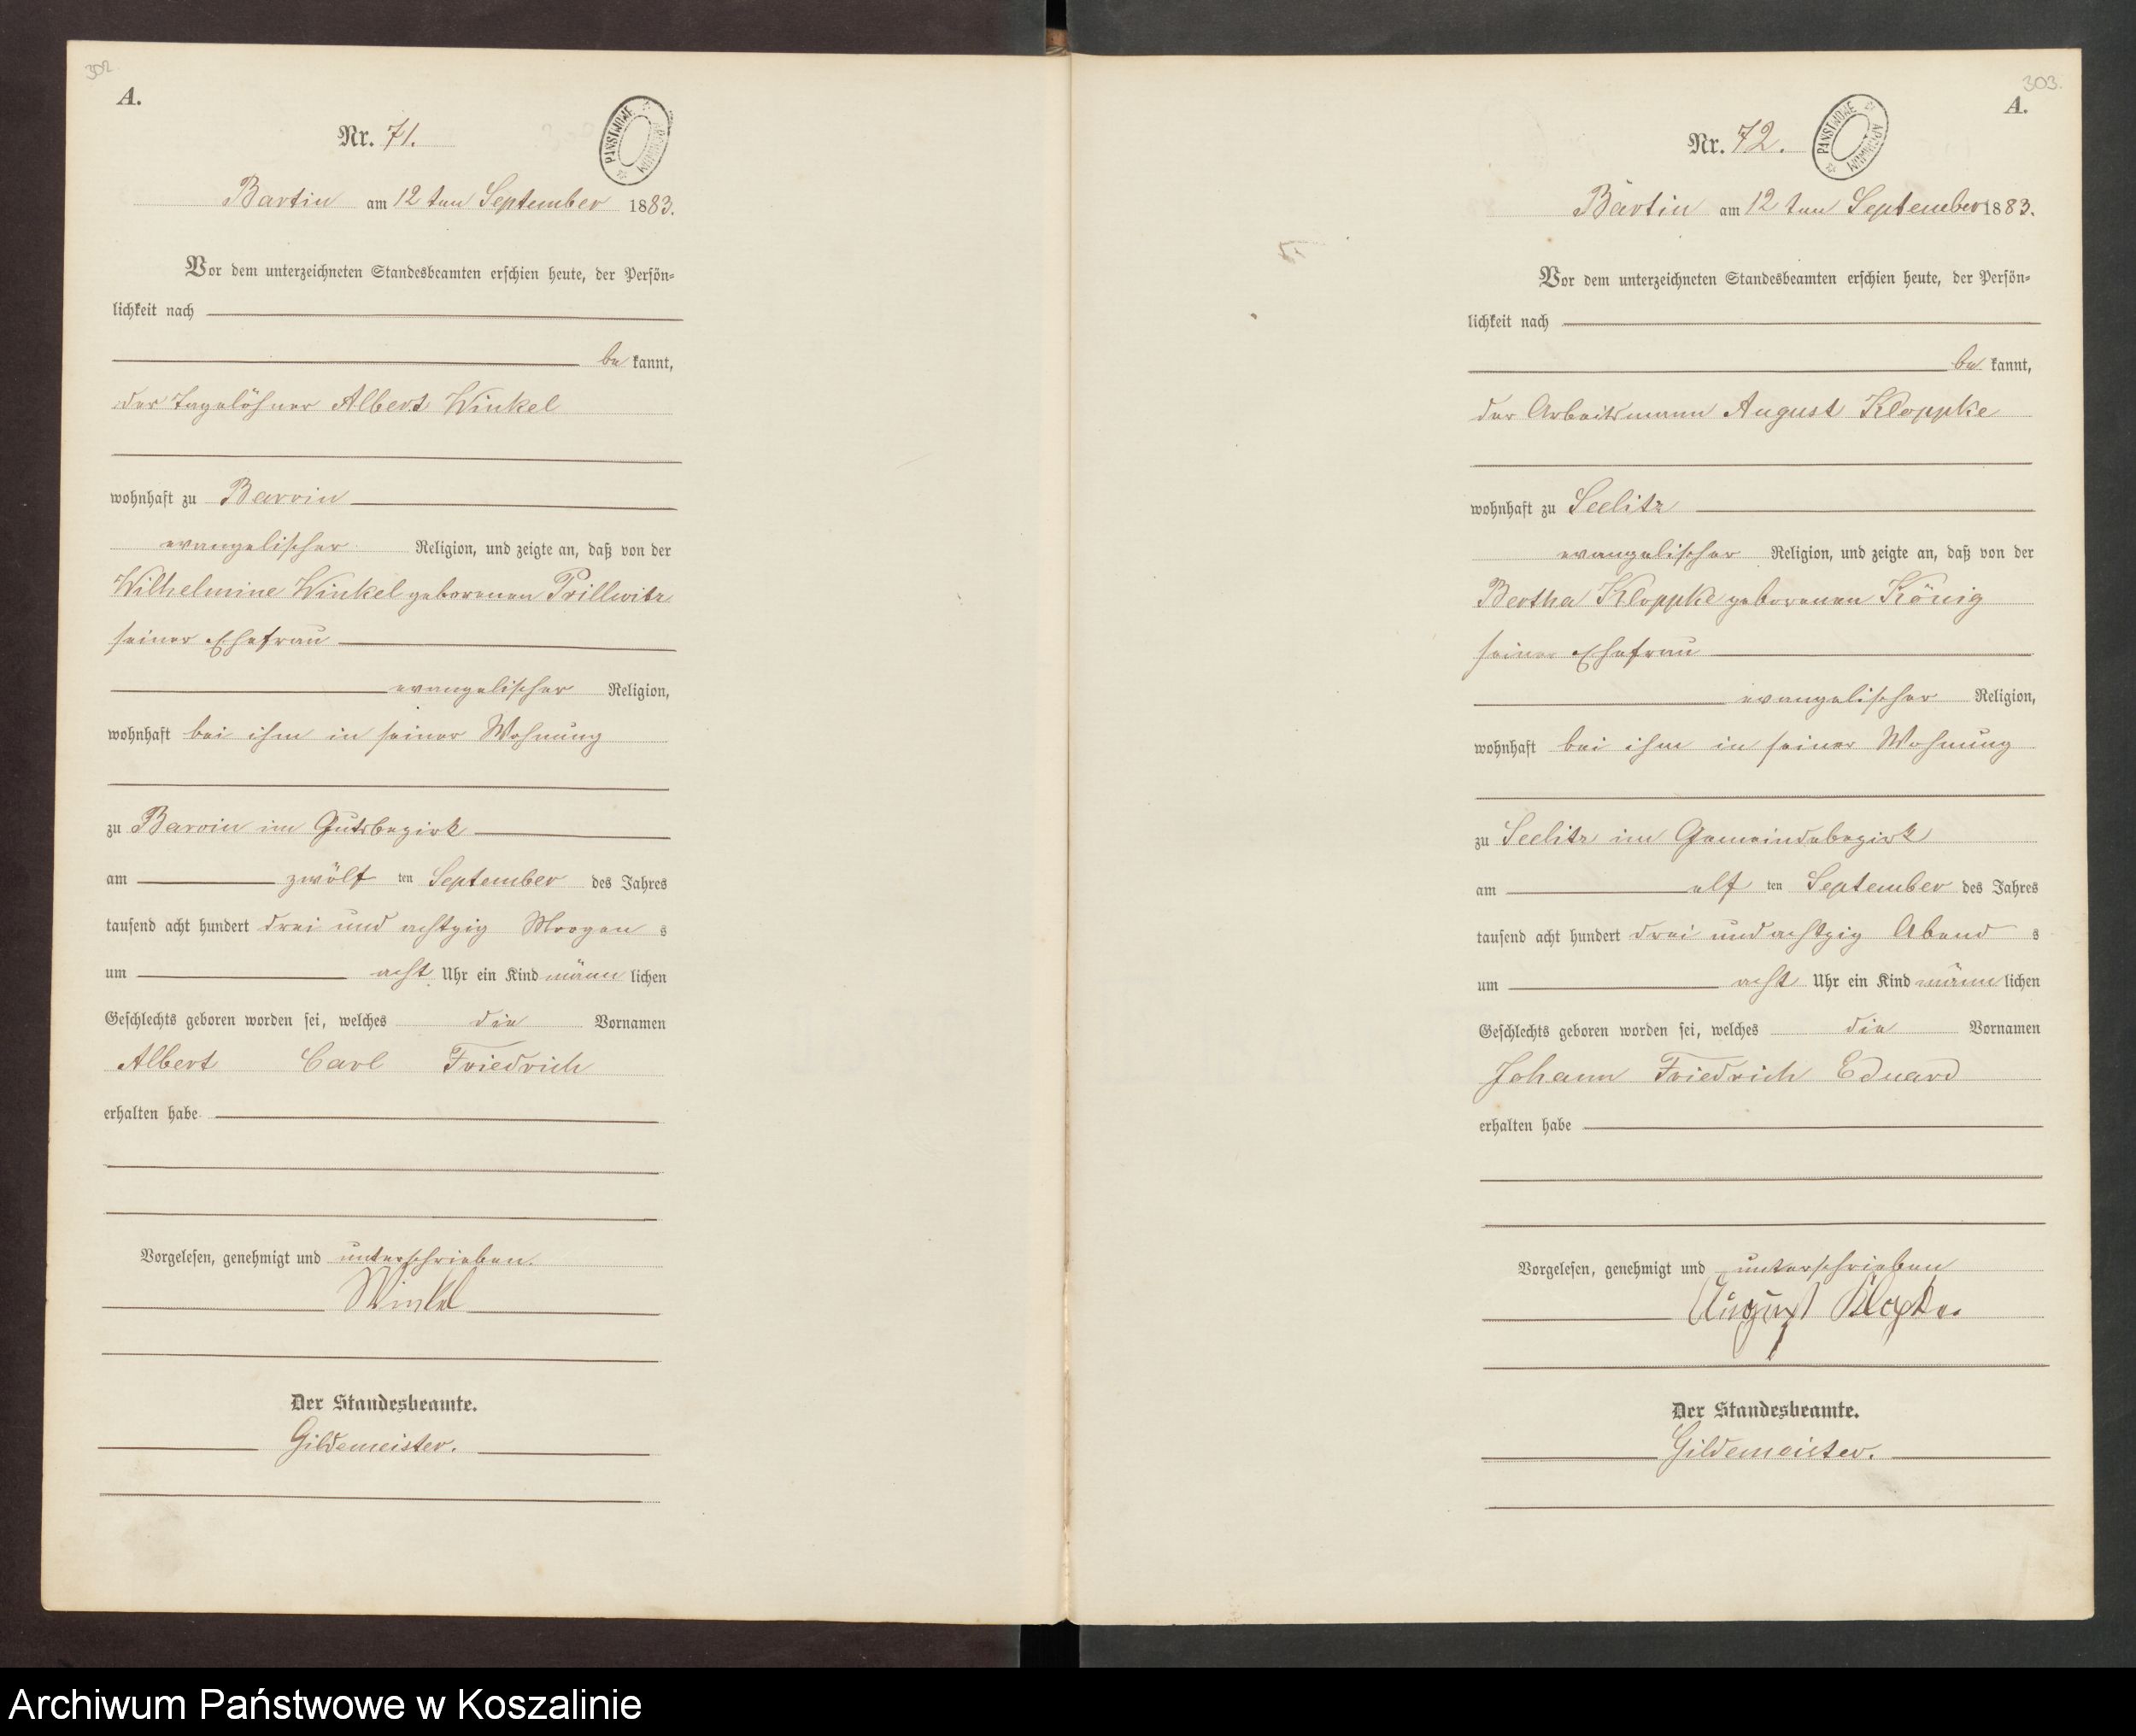 302.
A.
Nr. 71.
PAŃSTWOWE ARCHIWUM
Bartin am 12 ten September 1883.
Vor dem unterzeichneten Standesbeamten erschien heute, der Persön-
lichkeit nach
be kannt,
der Tagelöhner Albert Winkel
wohnhaft zu Barvin
evangelischer Religion, und zeigte an, daß von der
Wilhelmine Winkel geborenen Prillwitz
seiner Ehefrau
evangelischer Religion,
wohnhaft bei ihm in seiner Wohnung
zu Barvin im Gutsbezirk
am zwölf ten September des Jahres
tausend acht hundert drei und achtzig Morgen s
um acht Uhr ein Kind männ lichen
Geschlechts geboren worden sei, welches die Vornamen
Albert Carl Friedrich
erhalten habe
Vorgelesen, genehmigt und unterschrieben.
Winkel
Der Standesbeamte.
Gildemeister.
303.
A.
Nr. 72.
PAŃSTWOWE ARCHIWUM
Bartin am 12 ten September 1883.
Vor dem unterzeichneten Standesbeamten erschien heute, der Persön-
lichkeit nach
be kannt,
der Arbeitsmann August Kloppke
wohnhaft zu Seelitz
evangelischer Religion, und zeigte an, daß von der
Bertha Kloppke geborenen König
seiner Ehefrau
evangelischer Religion,
wohnhaft bei ihm in seiner Wohnung
zu Seelitz im Gemeindebezirk
am elf ten September des Jahres
tausend acht hundert drei und achtzig Abend s
um acht Uhr ein Kind männ lichen
Geschlechts geboren worden sei, welches die Vornamen
Johann Friedrich Eduard
erhalten habe
Vorgelesen, genehmigt und unterschrieben
August Klopke.
Der Standesbeamte.
Gildemeister.
Archiwum Państwowe w Koszalinie